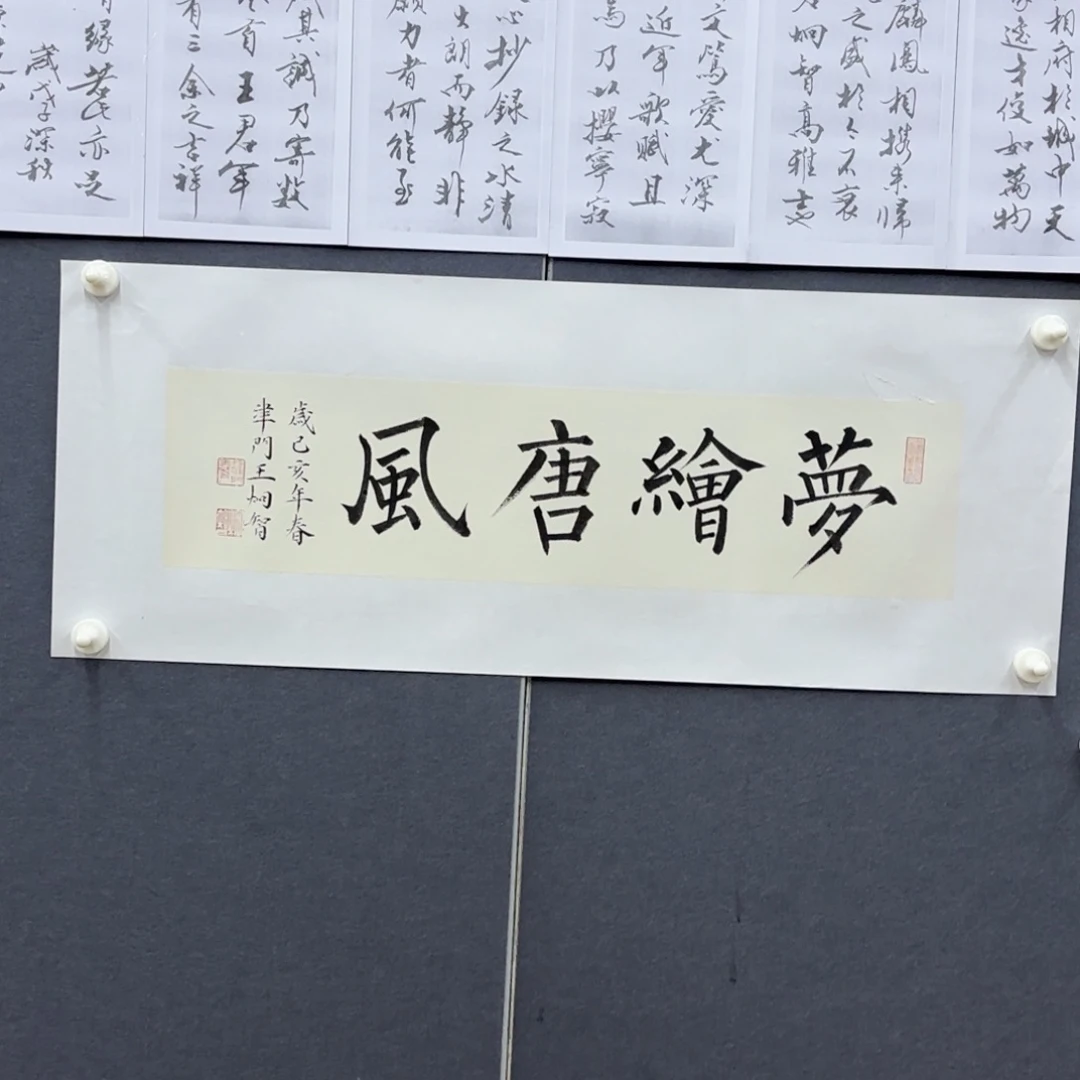 夢繪唐風
歲己亥年春
津門王炯智
相府於城中天
遠才俊如萬物
麟鳳相携來歸
之盛於今不衰
炯智高雅志
文篤愛尤深
近年歌賦且
焉乃以攖寧寂
心抄錄之冰清
朗而靜非
願力者何能至
其誠乃寄數
百王君年
有三余之吉祥
緣若氏亦足
歲戊子深秋